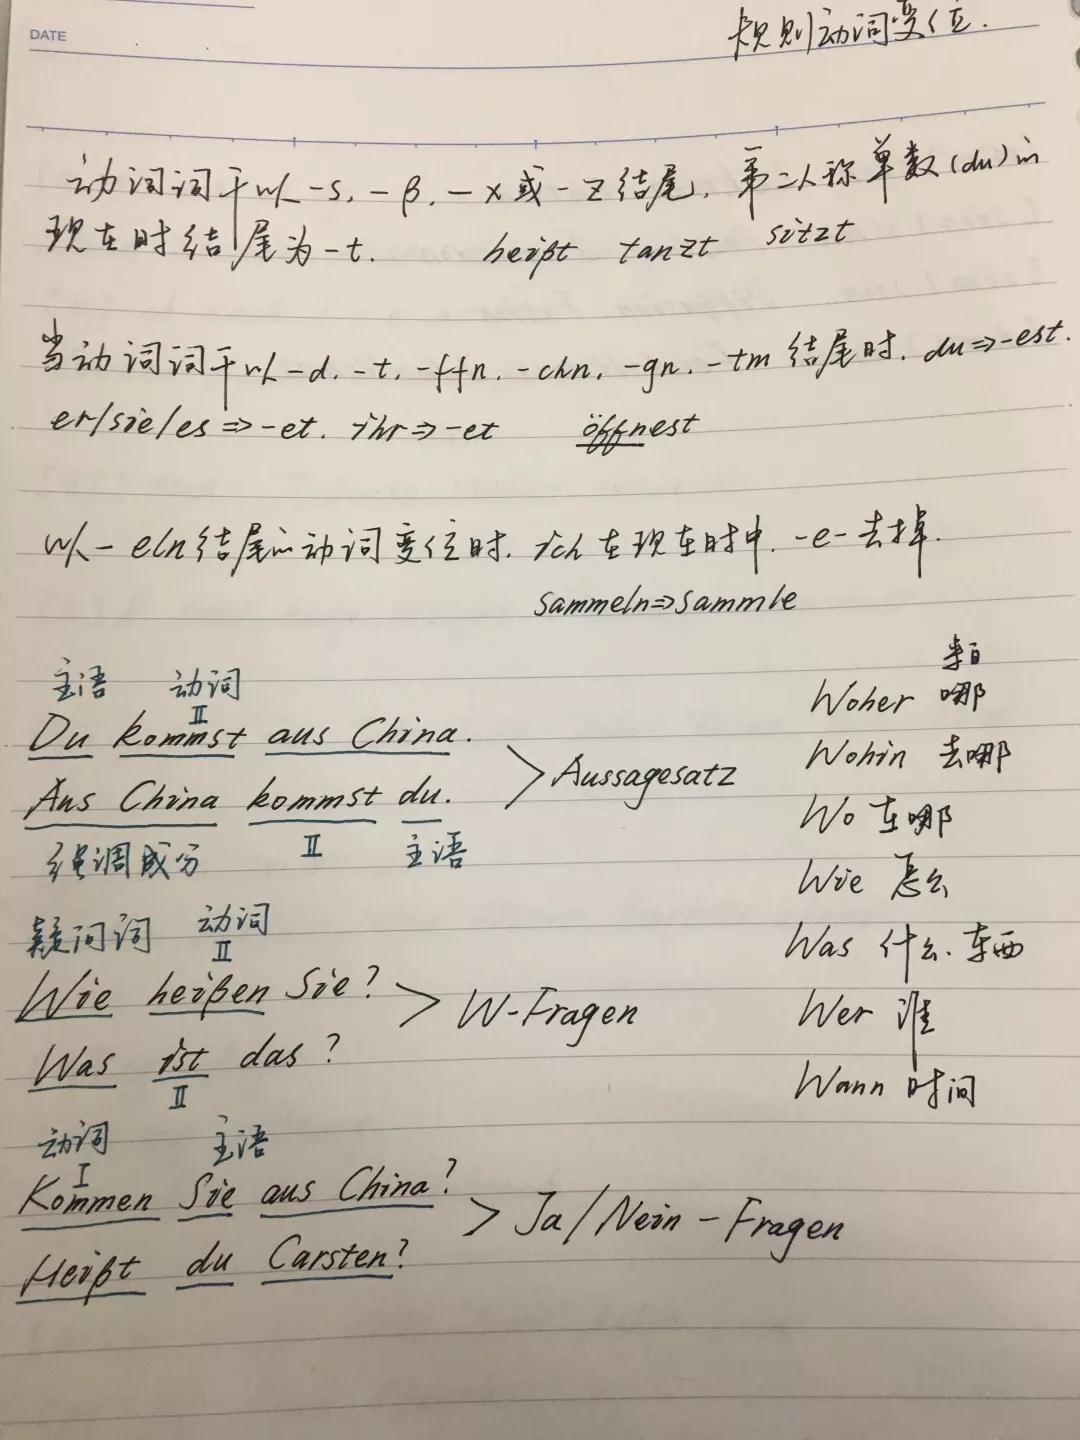 DATE
规则动词变位.
动词词干以 -s. -β. -x 或 -z 结尾. 第二人称单数(du)的
现在时结尾为 -t. heiβt tanzt sitzt
当动词词干以 -d. -t. -ffn. -chn. -gn. -tm 结尾时. du⇒-est.
er/sie/es ⇒ -et. ihr ⇒ -et öffnest
以 -eln 结尾的动词变位时. ich 在现在时中. -e- 去掉.
sammeln⇒sammle
主语 动词
II
Du kommst aus China.
Aus China kommst du.
> Aussagesatz
强调成分 II 主语
疑问词 动词
II
Wie heiβen Sie?
Was ist das?
> W-Fragen
II
动词 主语
I
Kommen Sie aus China?
Heiβt du Carsten?
> Ja/Nein-Fragen
来自
Woher 哪
Wohin 去哪
Wo 在哪
Wie 怎么
Was 什么.东西
Wer 谁
Wann 时间